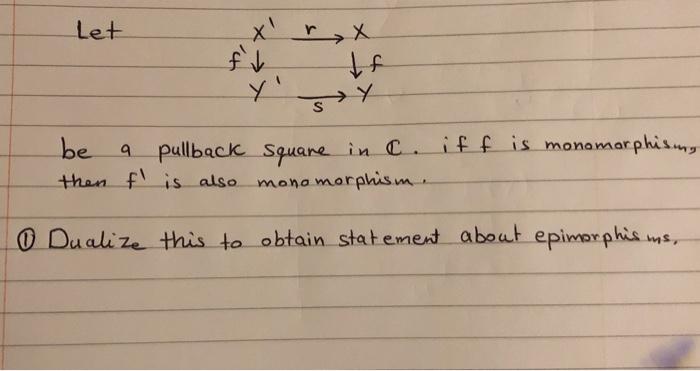 Let X' r→ X
f'↓ ↓f
Y' s→ Y
be a pullback square in ℂ. if f is monomorphism,
then f' is also monomorphism.
① Dualize this to obtain statement about epimorphisms,